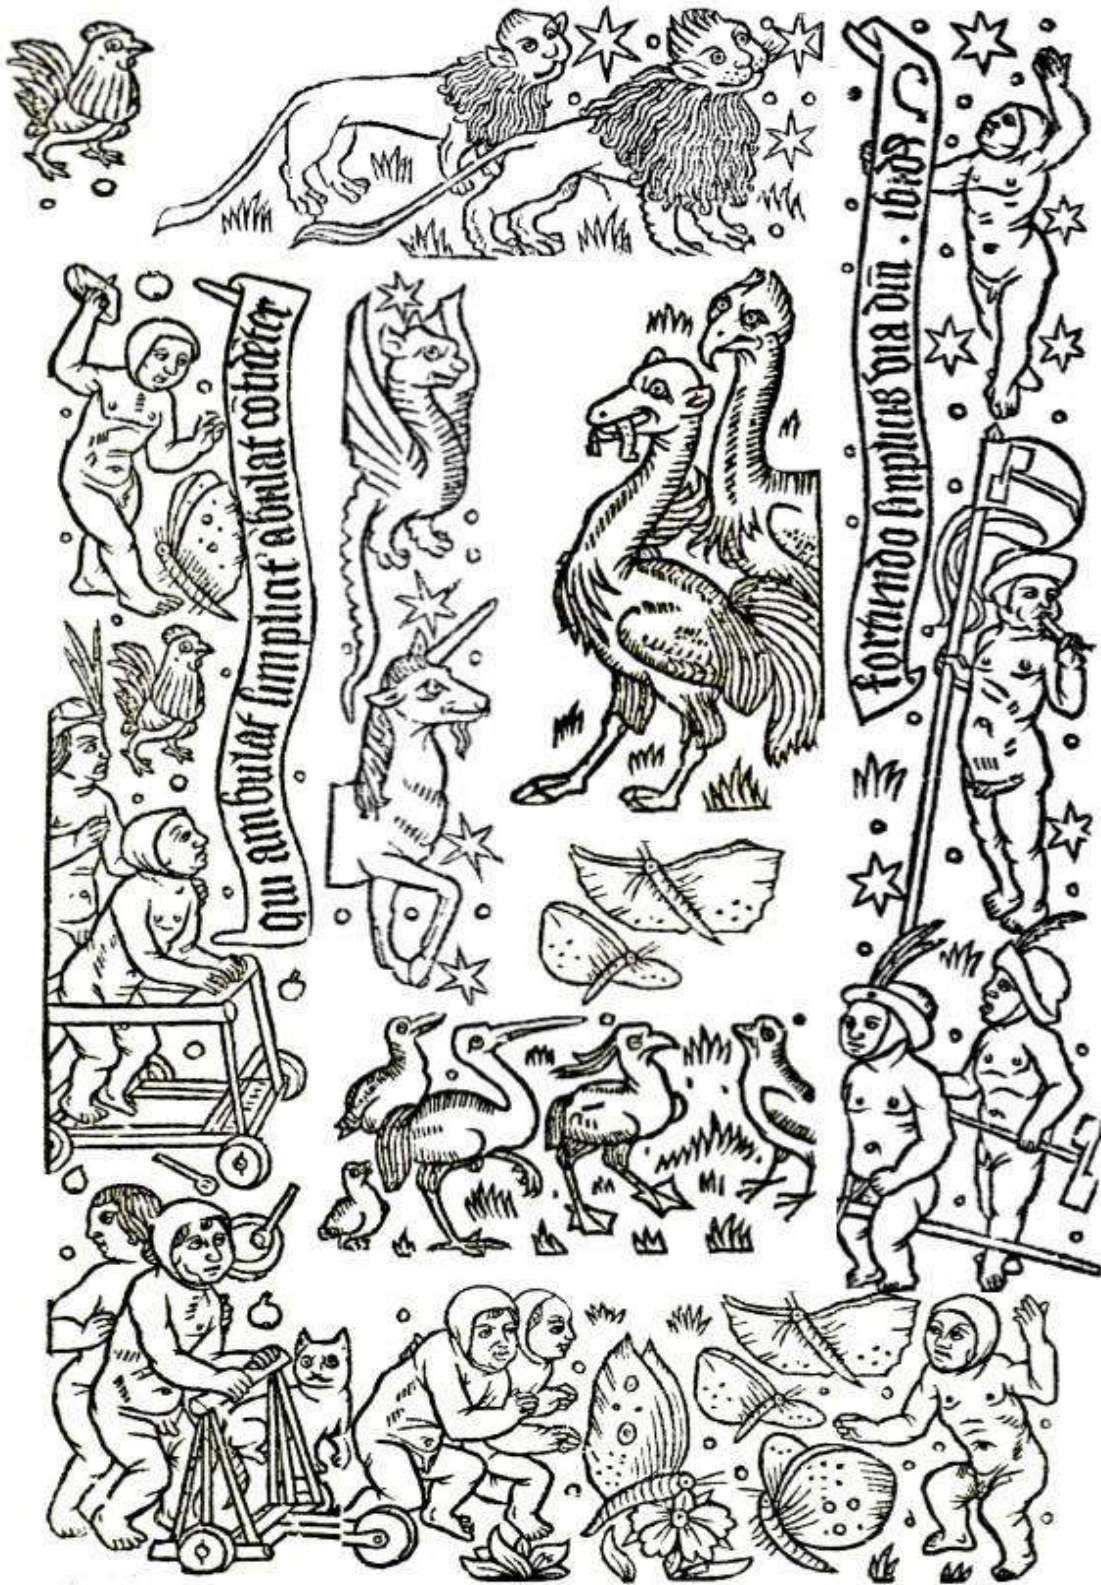 qui ambulat simplicit̄ ābulat cōfidēter
fortitudo simplicis via dñi .